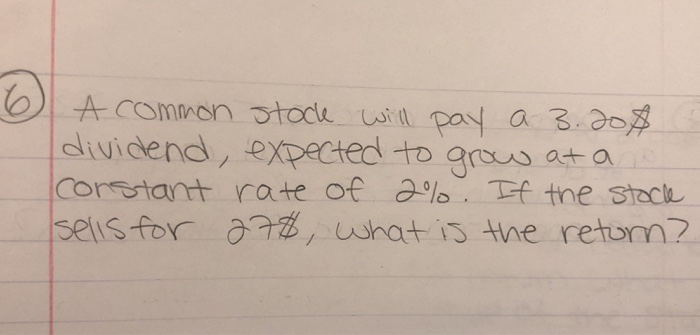 6 A common stock will pay a 3.20$
dividend, expected to grow at a
constant rate of 2%. If the stock
sells for 27$, what is the return?